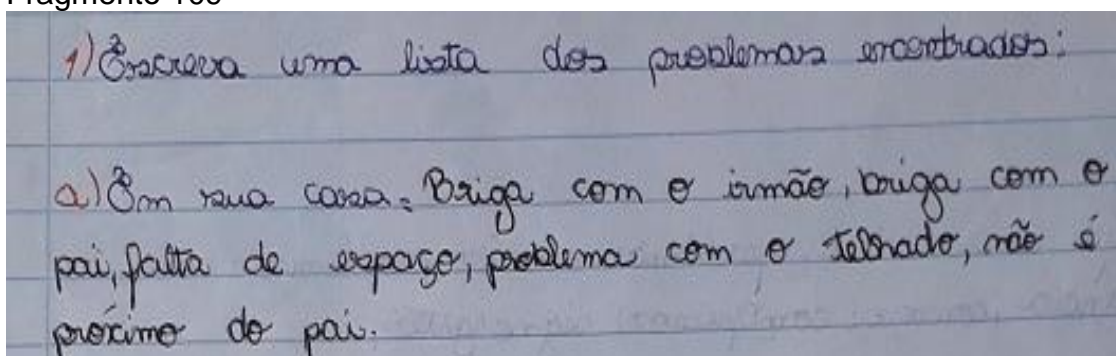 1) Escreva uma lista dos problemas encontrados:
a) Em sua casa: Briga com o irmão, briga com o
pai, falta de espaço, problema com o telhado, não é
próximo do pai.